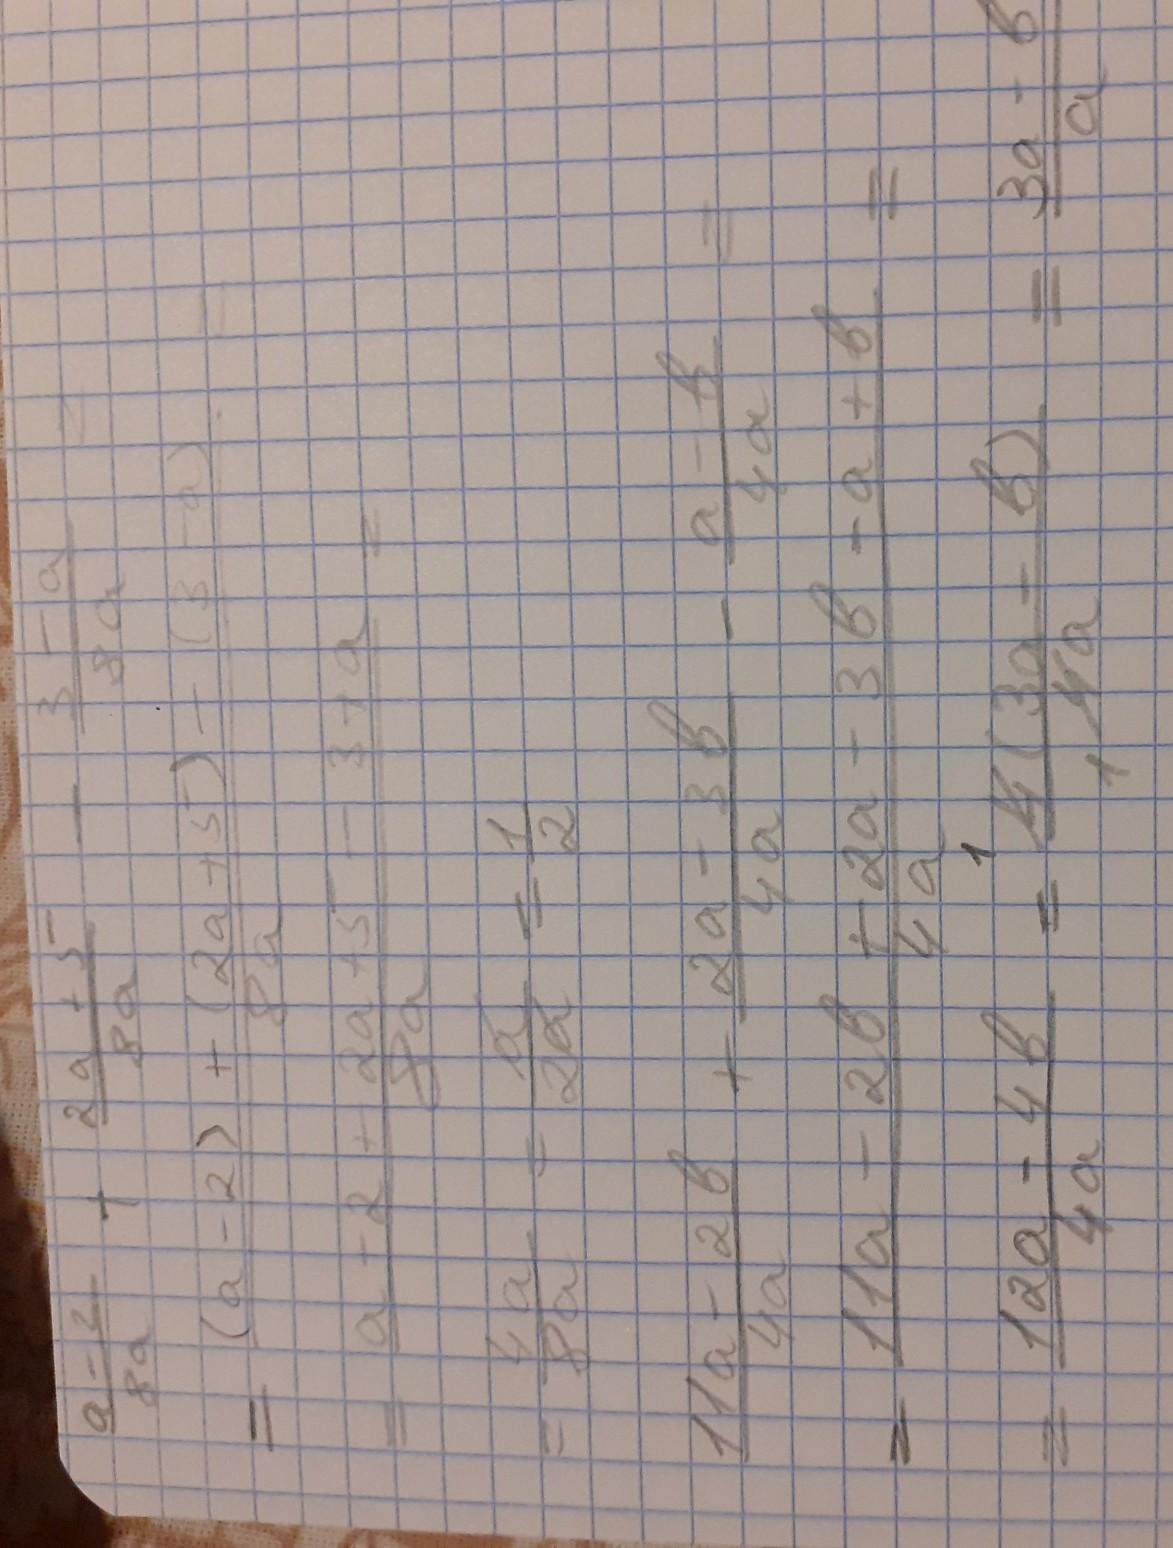 (a-2)/8a + (2a+5)/8a - (3-a)/8a =
= ((a-2)+(2a+5)-(3-a))/8a =
= (a-2+2a+5-3+a)/8a =
= 4a/8a = a/2a = 1/2
(11a-2b)/4a + (2a-3b)/4a - (a-b)/4a =
= (11a-2b+2a-3b-a+b)/4a =
= (12a-4b)/4a = ¹4(3a-b)/₁4a = (3a-b)/a